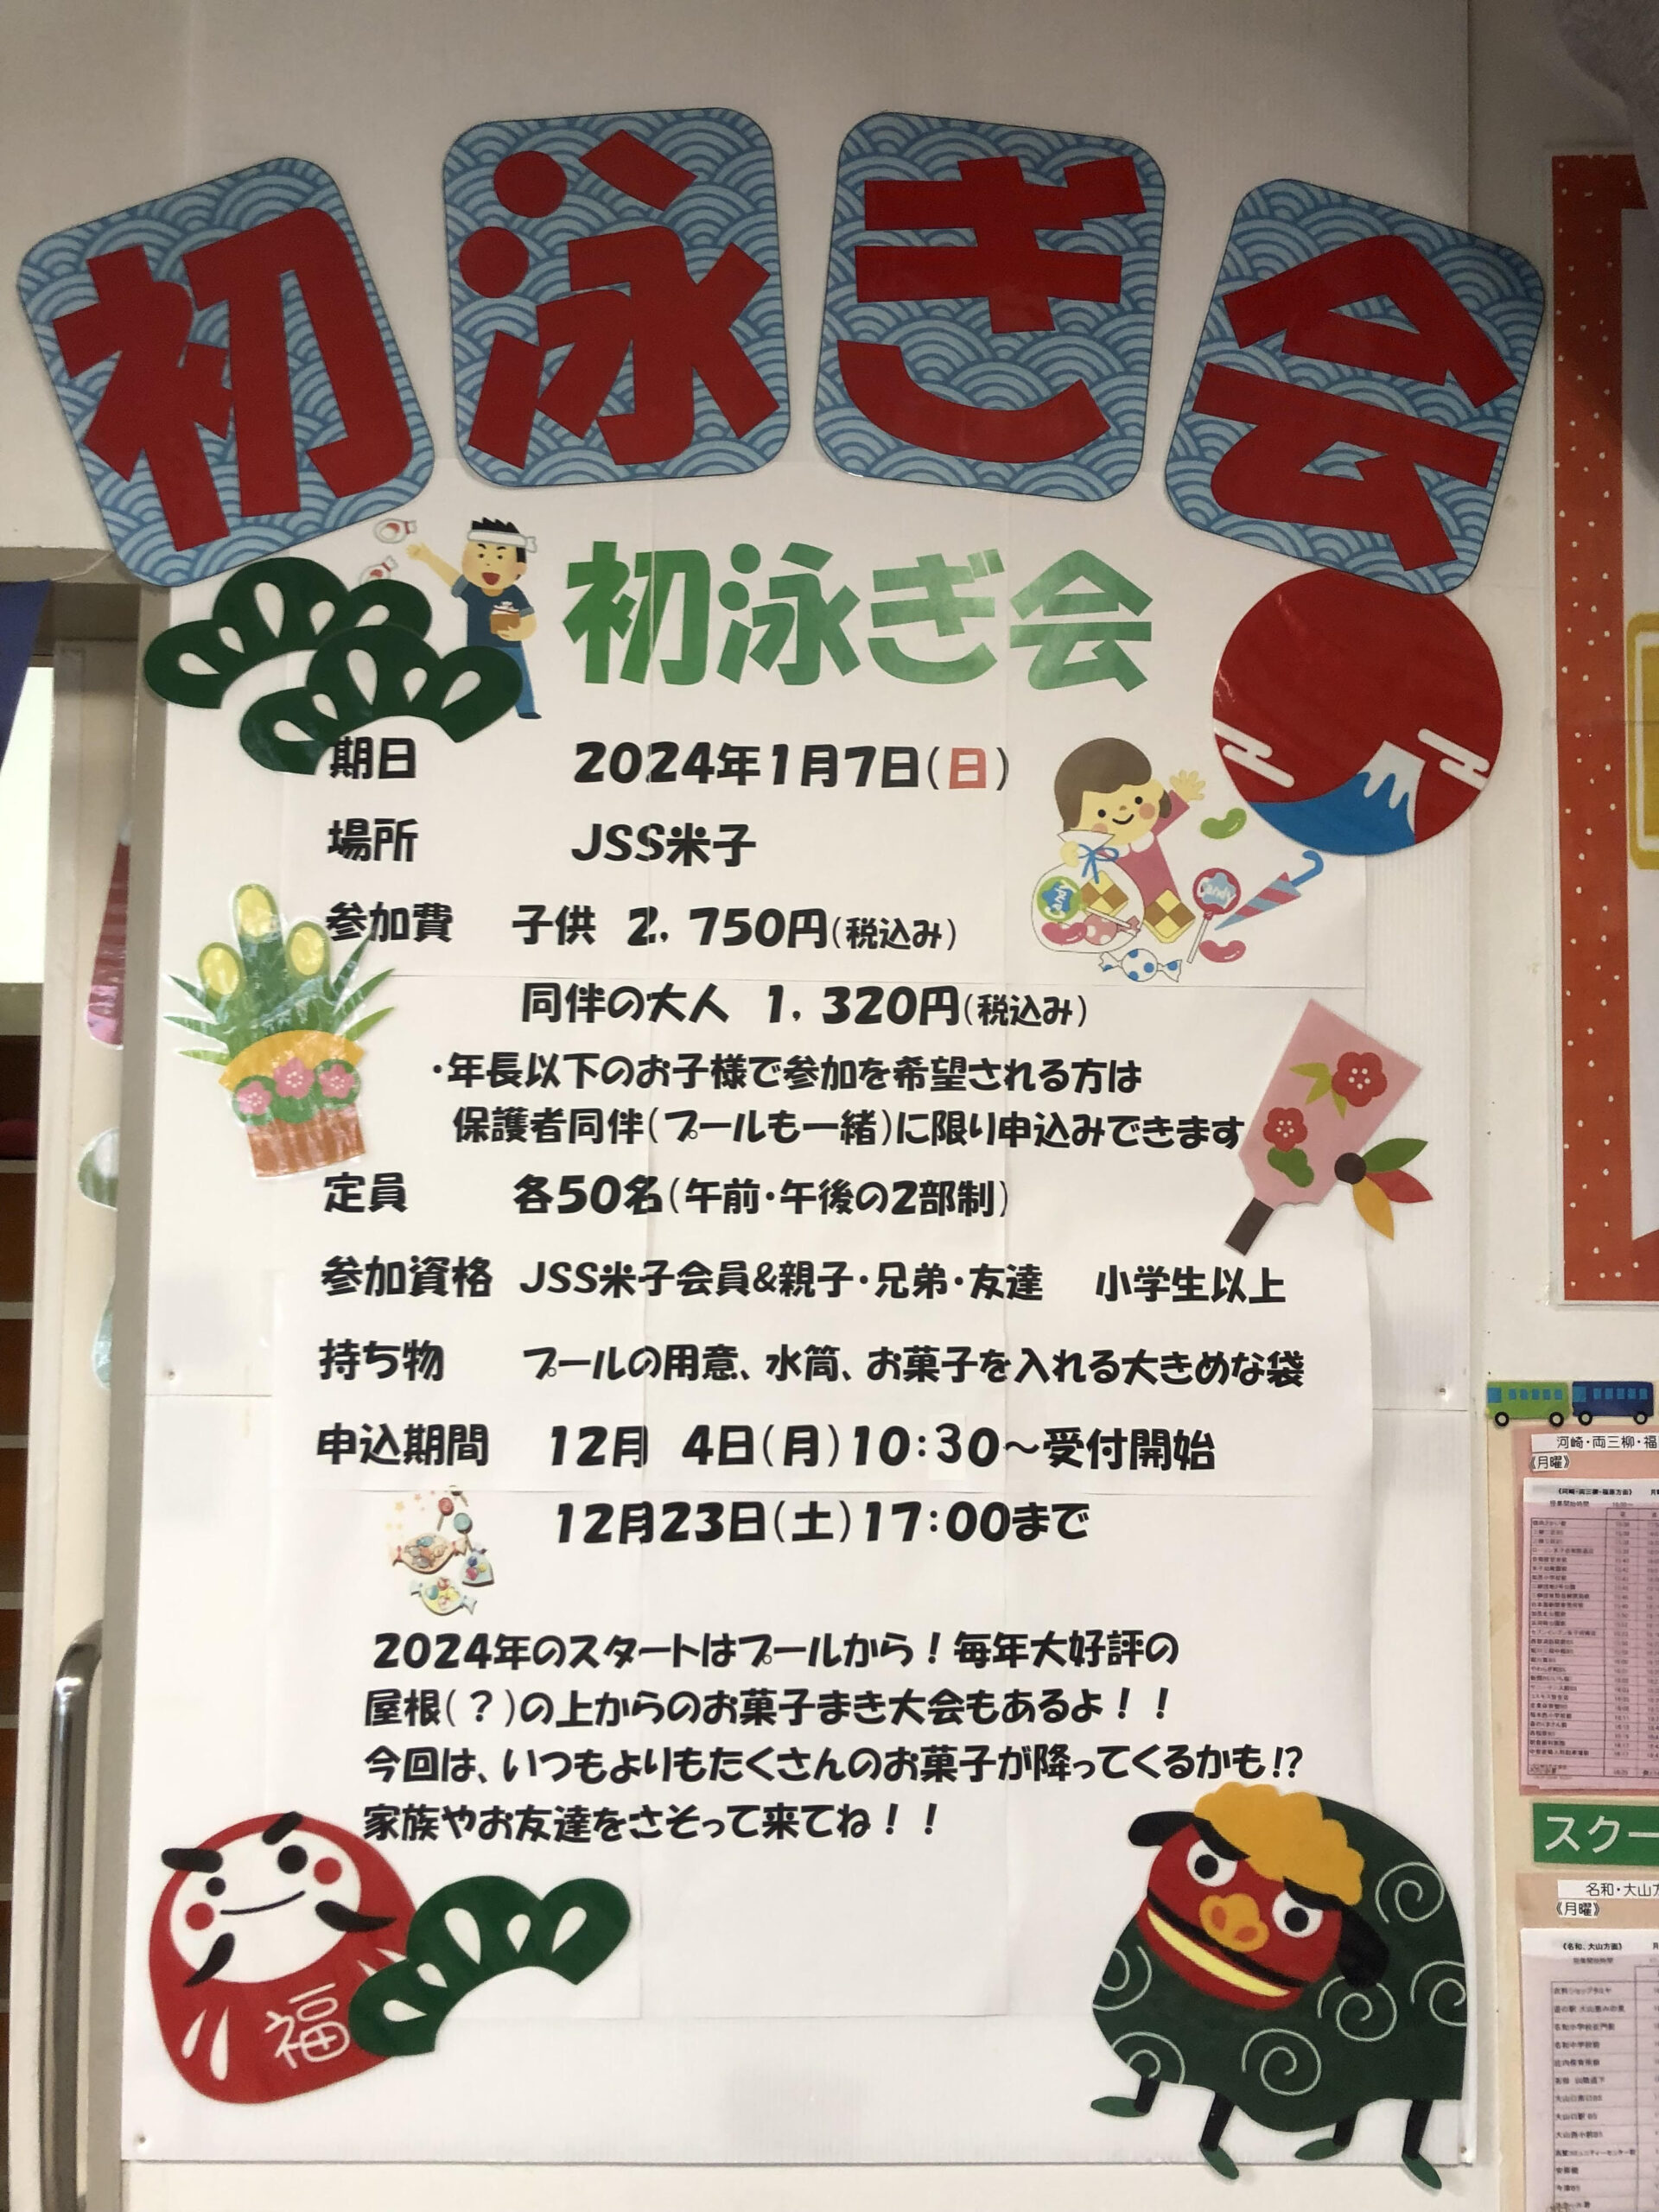 初泳ぎ会
初泳ぎ会
期日 2024年1月7日(日)
場所 JSS米子
参加費 子供 2，750円(税込み)
同伴の大人 1，320円(税込み)
・年長以下のお子様で参加を希望される方は
保護者同伴(プールも一緒)に限り申込みできます
定員 各50名(午前・午後の2部制)
参加資格 JSS米子会員&親子・兄弟・友達 小学生以上
持ち物 プールの用意、水筒、お菓子を入れる大きめな袋
申込期間 12月 4日(月)10:30～受付開始
12月23日(土)17:00まで
2024年のスタートはプールから！毎年大好評の
屋根(？)の上からのお菓子まき大会もあるよ！！
今回は、いつもよりもたくさんのお菓子が降ってくるかも!?
家族やお友達をさそって来てね！！
福
Candy
河崎・両三柳・福
《月曜》
スクー
名和・大山方
《月曜》
《名和、大山方面》